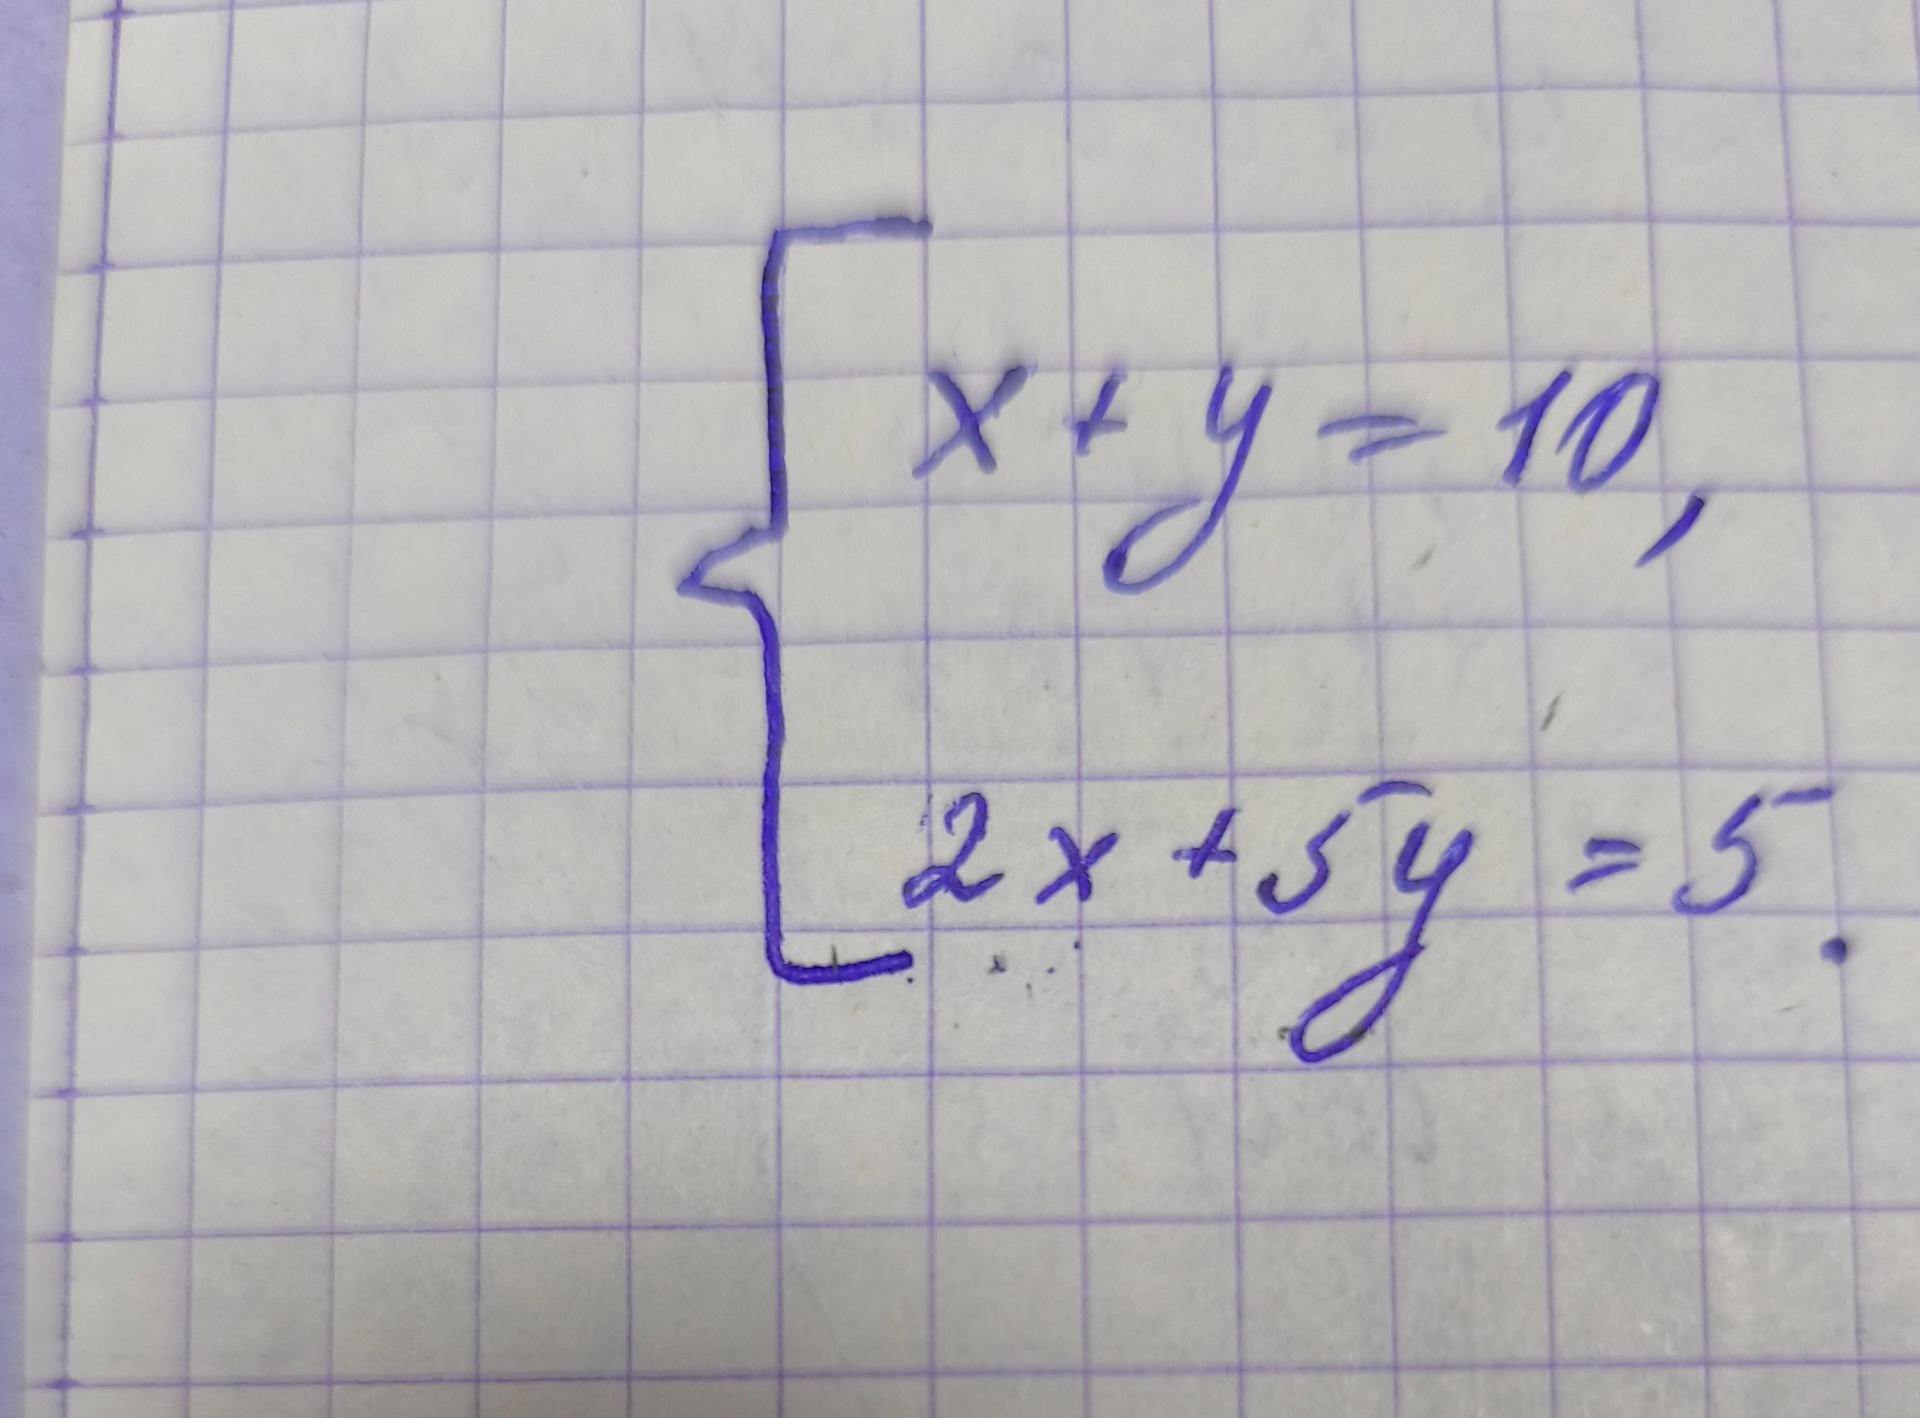 x + y = 10,
2x + 5y = 5.